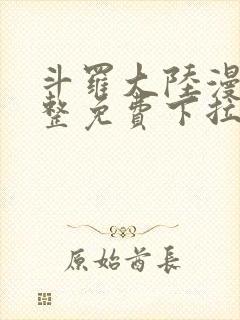 斗羅大陸漫
整免費下拉
原始酋長